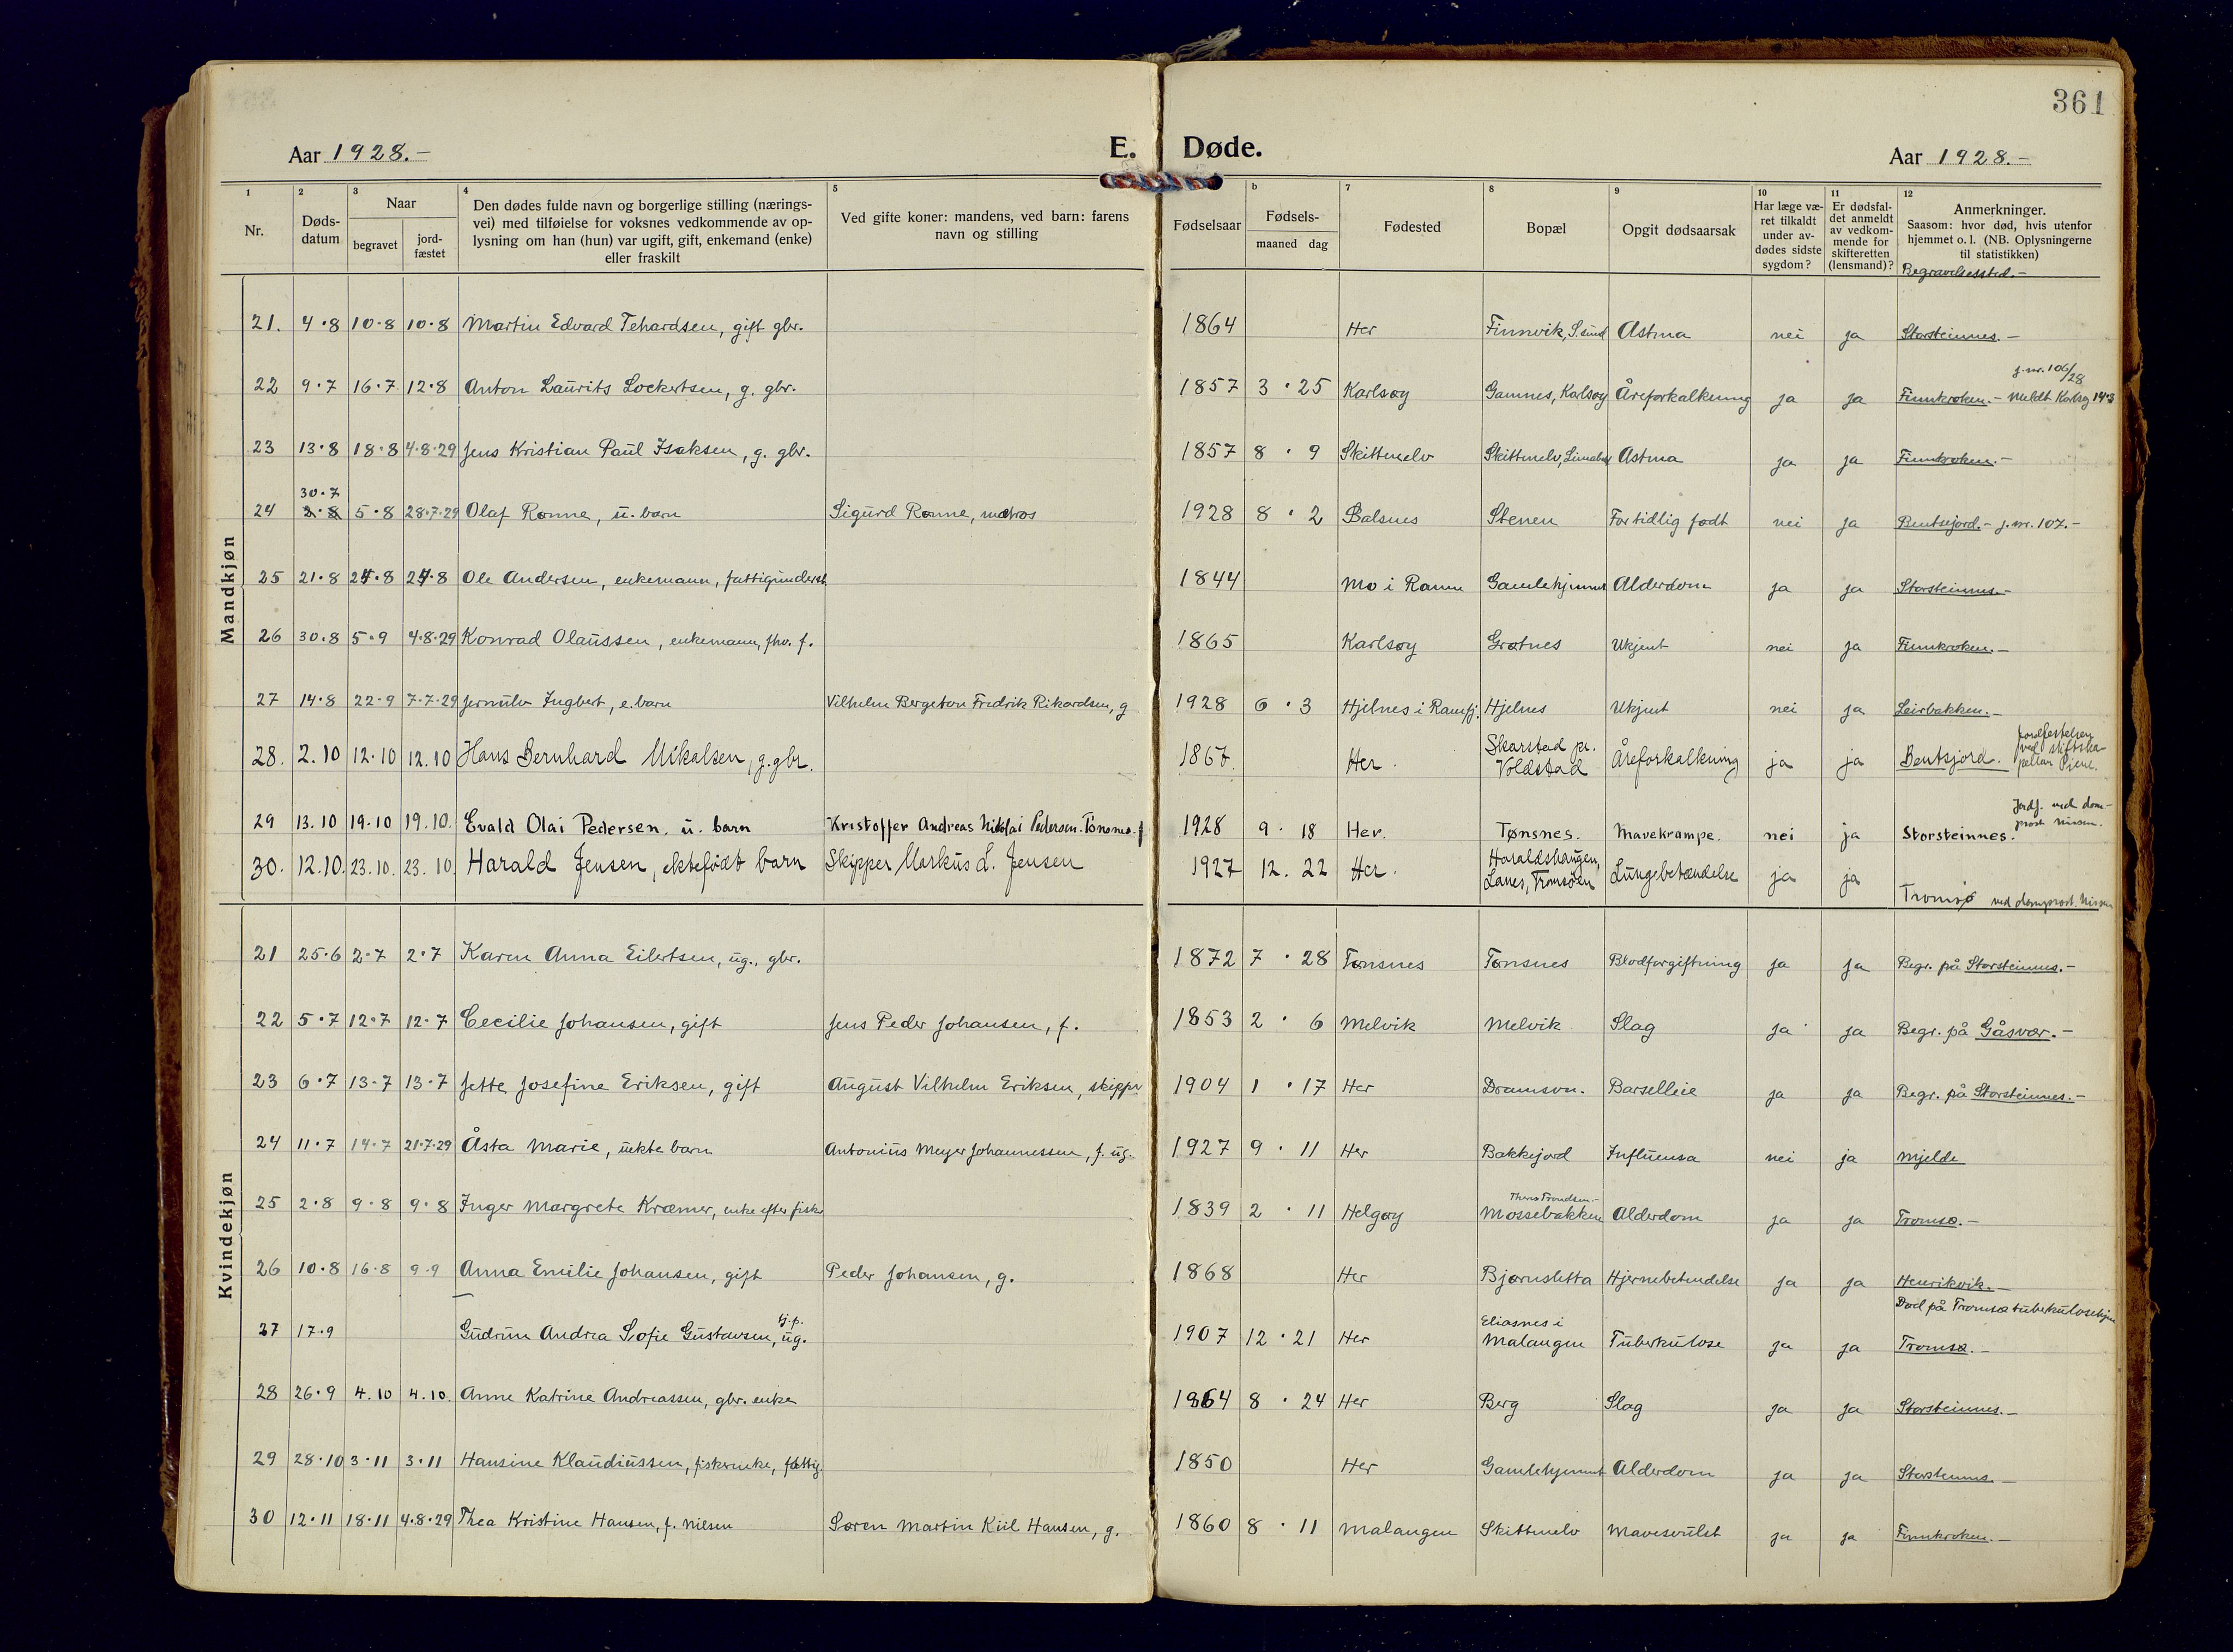 361
Aar 1928.-
E. Døde.
Aar 1928.-
1 2 3 4 5 b 7 8 9 10 11 12
Nr.
Døds-
datum
Naar
begravet
jord-
fæstet
Den dødes fulde navn og borgerlige stilling (nærings-
vei) med tilføielse for voksnes vedkommende av op-
lysning om han (hun) var ugift, gift, enkemand (enke)
eller fraskilt
Ved gifte koner: mandens, ved barn: farens
navn og stilling
Fødselsaar
Fødsels-
maaned dag
Fødested
Bopæl
Opgit dødsaarsak
Har læge væ-
ret tilkaldt
under av-
dødes sidste
sygdom?
Er dødsfal-
det anmeldt
av vedkom-
mende for
skifteretten
(lensmand)?
Anmerkninger.
Saasom: hvor død, hvis utenfor
hjemmet o. l. (NB. Oplysningerne
til statistikken)
Begravelsessted.-
Mandkjøn
21. 4·8 10·8 10·8 Martin Edvard Tehardsen, gift gbr. 1864 Her Finnvik, S.sund Astma nei ja Storsteinnes.-
j.nr. 106/28
22 9·7 16·7 12·8 Anton Laurits Lockertsen, g. gbr. 1857 3·25 Karlsøy Gamnes, Karlsøy Åreforkalkning ja ja Finnkroken.- Meldt Karlsøy 14-3
23 13·8 18·8 4·8·29 Jens Kristian Paul Isaksen, g. gbr. 1857 8·9 Skittenelv Skittenelv, Astma ja ja Finnkroken.-
30·7
24 2·8 5·8 28·7·29 Olaf Rønne, u. barn Sigurd Rønne, matros 1928 8·2 Balsnes Stenen For tidlig født nei ja Bentsjord.- j.nr. 107.-
25 21·8 27·8 27·8 Ole Andersen, enkemann, fattigunderst. 1844 Mo i Ranen Gamlehjemmet Alderdom ja ja Storsteinnes.-
26 30·8 5·9 4·8·29 Konrad Olaussen, enkemann, fhv. f. 1865 Karlsøy Grøtnes Ukjent nei ja Finnkroken.-
27 14·8 22·9 7·7·29 Jernulv Ingbert, e. barn Vilhelm Bergeton Fredrik Rikardsen, g 1928 6·3 Hjelnes i Ramfj. Hjelnes Ukjent nei ja Leirbakken.-
28. 2.10 12.10 12.10 Hans Bernhard Mikalsen, g. gbr. 1867. Her. Skarstad pr. Voldstad Åreforkalkning ja ja Bentsjord. jordfestelsen
ved stiftska-
pellan
29 13.10 19.10 19.10. Evald Olai Pedersen. u. barn Kristoffer Andreas Nikolai Pedersen. Tønsnes. f 1928 9·18 Her. Tønsnes. Mavekrampe. nei ja Storsteinnes. Jordf. ved dom-
prost Nissen.
30. 12.10. 23.10. 23.10. Harald Jensen, ektefødt barn Skipper Markus L. Jensen 1927 12. 22 Her. Haraldshaugen, Lanes, Tromsøen Lungebetændelse ja ja Tromsø ved domprost. Nissen
Kvindekjøn
21 25·6 2·7 2·7 Karen Anna Eilertsen, ug., gbr. 1872 7·28 Tønsnes Tønsnes Blodforgiftning ja ja Begr. på Storsteinnes.-
22 5·7 12·7 12·7 Cecilie Johansen, gift Jens Peder Johansen, f. 1853 2·6 Melvik Melvik Slag ja ja Begr. på Gåsvær.-
23 6·7 13·7 13·7 Jette Josefine Eriksen, gift August Vilhelm Eriksen, skipper 1904 1·17 Her Dramsvn. Barselleie ja ja Begr. på Storsteinnes.-
24 11·7 14·7 21·7·29 Åsta Marie, uekte barn Antonius Meyer Johannessen, f. ug. 1927 9·11 Her Bakkejord Influensa nei ja Mjelde
25 2·8 9·8 9·8 Inger Margrete Kræmer, enke efter fisker 1839 2·11 Helgøy Thers Trondsen.- Mossebakken Alderdom ja ja Tromsø.-
26 10·8 16·8 9·9 Anna Emilie Johansen, gift Peder Johansen, g. 1868 Her Bjørnsletta Hjernebetendelse ja ja Henrikvik.-
27 17·9 Gudrun Andrea Sofie Gustavsen, tj.p. ug. 1907 12·21 Her Eliasnes i Malangen Tuberkulose ja ja Død på Tromsø tuberkulosehjem
Tromsø.-
28 26·9 4.10 4.10. Anne Katrine Andreassen, gbr. enke 1864 8·24 Her Berg Slag ja ja Storsteinnes.-
29 28·10 3·11 3·11 Hansine Klaudiussen, fiskerenke, fattig. 1850 Her Gamlehjemmet Alderdom ja ja Storsteinnes.-
30 12·11 18·11 4·8·29 Thea Kristine Hansen, f. Nilsen Søren Martin Kiil Hansen, g. 1860 8·11 Malangen Skittenelv Mavesvulst ja ja Finnkroken.-